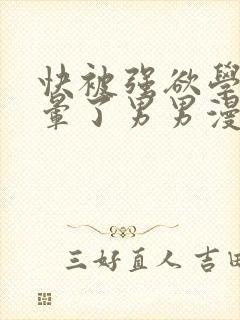 快被强欲學
暈了男男漫
三好直人 吉田